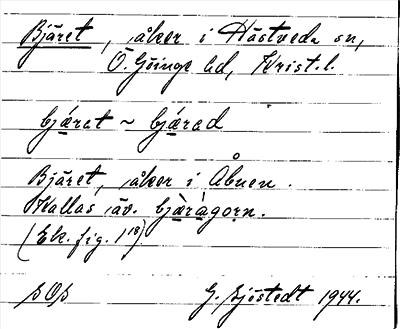 Bjäret, åker i Hästveda sn,
Ö. Göinge hd, Krist. l.
bjæret ~ bjæred
Bjäret, åker i Åbuen.
Kallas äv. bjæràgorn.
(Ek. fig. 1¹⁸)
SOS G. Sjöstedt 1944.